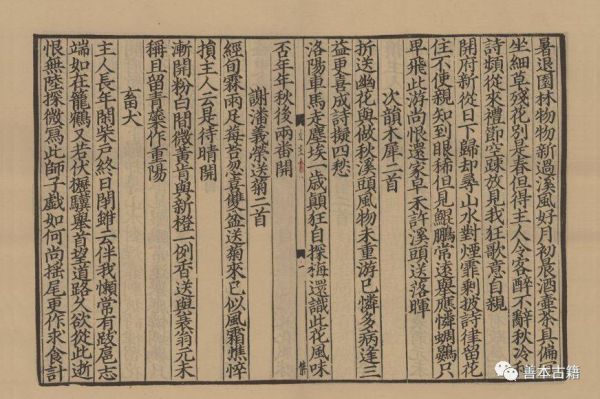 暑退園林物物新過溪風好月初辰酒壺茶具偏
坐細草殘花別是春但得主人令客醉不辭秋冷
詩頻從來禮節空疎放見我狂歌意自親
開府新從日下歸却尋山水對煙霏剩披詩律留花
住不使親知到眼稀但見鯤鵬常遠舉應憐蜩鷃只
卑飛此游尚恨還家早未許溪頭送落暉
次韻木犀二首
折送幽花與倣秋溪頭風物未重游已憐多病逢三
益更喜成詩擬四愁
洛陽車馬走塵埃一歲顛狂自探梅還識此花風味
否年年秋後兩番開
謝潘義榮送菊二首
經旬霖雨足莓苔忽喜雙盆送菊來已似風霜憔悴
損主人云是待晴開
漸開粉白間微黃肯與新橙一例香送與衰翁元未
稱且留青蘂作重陽
畜犬
主人長年閉柴戶終日閉雖云伴我懶常有跋扈志
端如在籠鶴又若伏櫪驥舉首望道路久欲從此逝
恨無陸探微寫此師子戲如何尚搖尾更作求食計
善本古籍